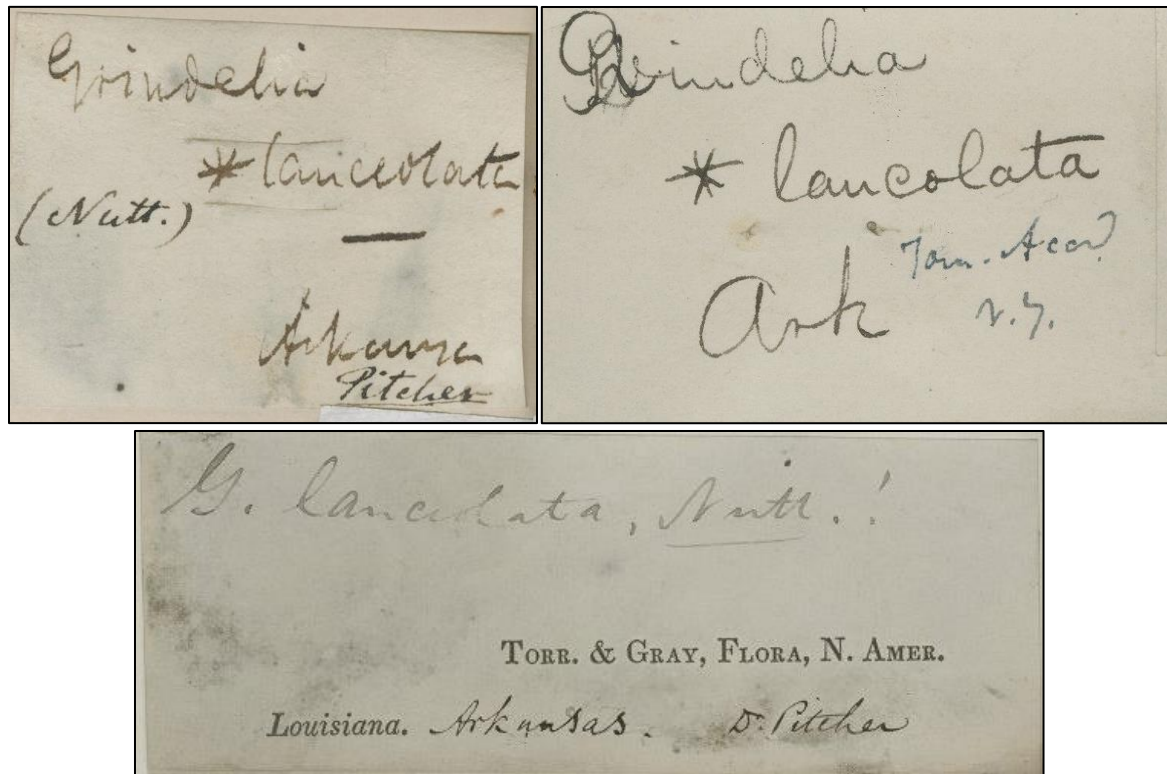 Grindelia
* lanceolata
(Nutt.)
Arkansa
Pitcher
Grindelia
* lancolata
Ark
G. lanceolata, Nutt.!
TORR. & GRAY, FLORA, N. AMER.
Louisiana. Arkansas. Dr. Pitcher